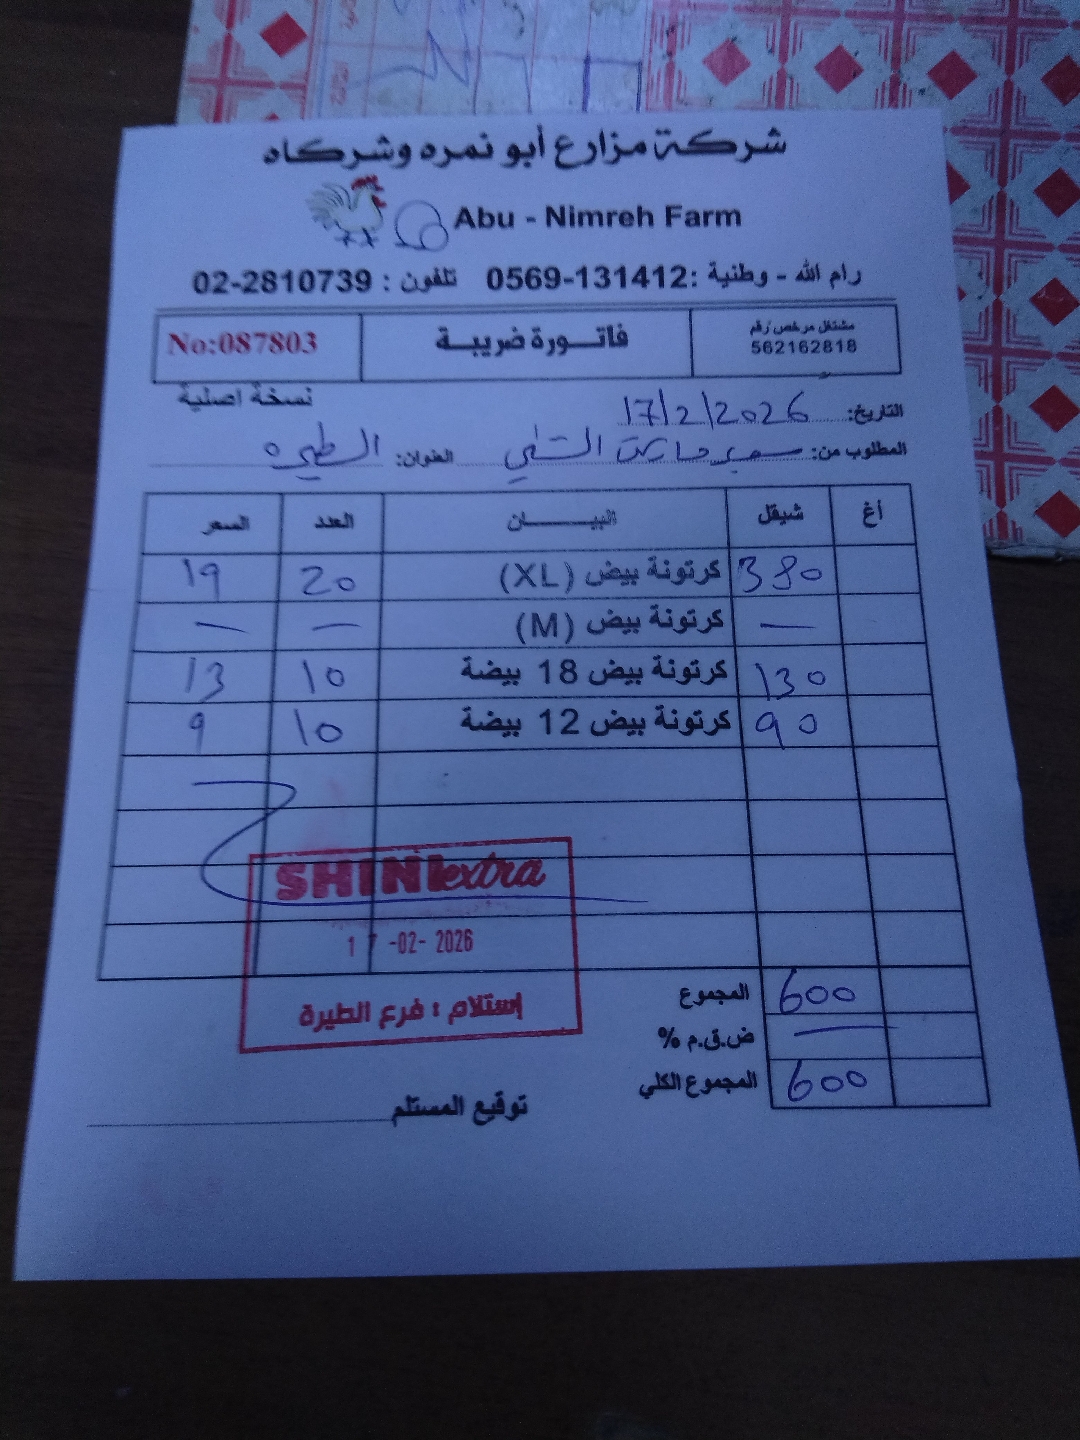 شركة مزارع أبو نمره وشركاه
Abu - Nimreh Farm
رام الله - وطنية :0569-131412 تلفون : 02-2810739
مشتغل مرخص/رقم
562162818
فاتـــورة ضريبـــة
No:087803
نسخة اصلية
التاريخ: 17/2/2026
المطلوب من: سوبر ماركت الشني العنوان: الطيره
أغ شيقل البيـــــــان العدد السعر
380 كرتونة بيض (XL) 20 19
— كرتونة بيض (M) — —
130 كرتونة بيض 18 بيضة 10 13
90 كرتونة بيض 12 بيضة 10 9
SHINI extra
17-02-2026
إستلام : فرع الطيرة
المجموع 600
ض.ق.م % —
المجموع الكلي 600
توقيع المستلم